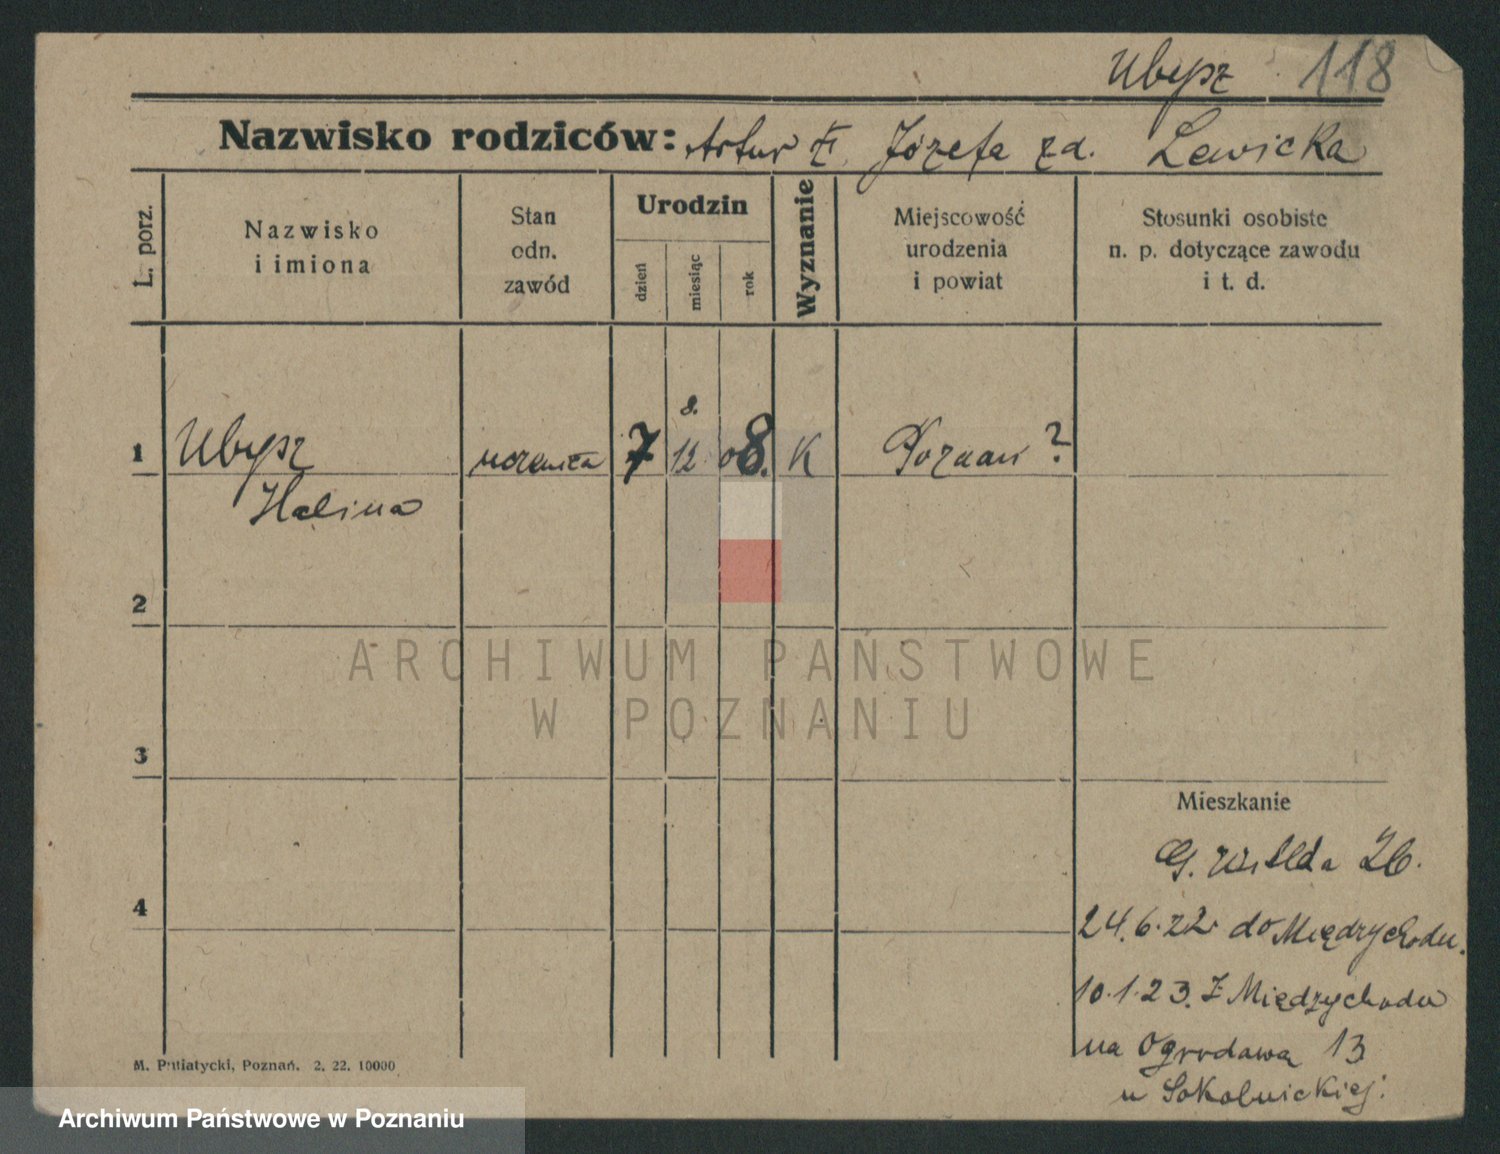 Ubysz 118
Nazwisko rodziców: Artur i Józefa zd. Lewicka
L. porz.
Nazwisko
i imiona
Stan
odn.
zawód
Urodzin
dzień
miesiąc
rok
Wyznanie
Miejscowość
urodzenia
i powiat
Stosunki osobiste
n. p. dotyczące zawodu
i t. d.
8.
1 Ubysz uczenica 7 12 08. K Poznań ?
Halina
2
ARCHIWUM PAŃSTWOWE
W POZNANIU
3
Mieszkanie
G. Wilda 26.
4
24.6.22 do Międzychodu.
10.1.23. z Międzychodu
na Ogrodowa 13
u Sokolnickiej.
M. Putiatycki, Poznań. 2. 22. 10000
Archiwum Państwowe w Poznaniu